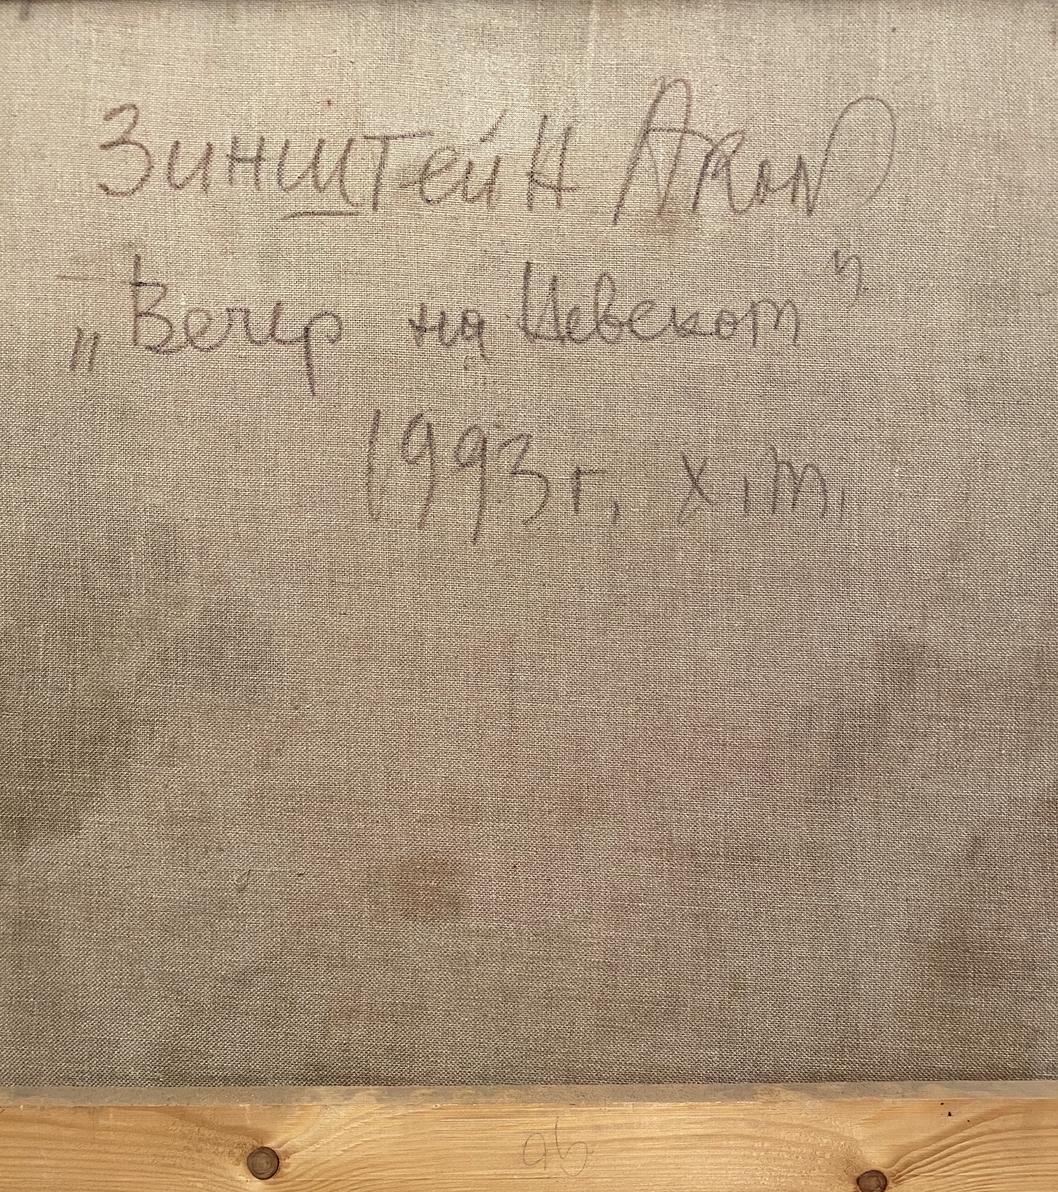 Зинштейн Арон
„Вечер на Невском”
1993 г, х, т,
96